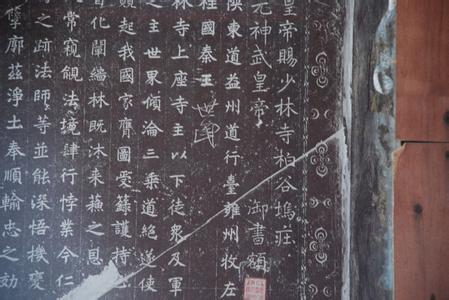 皇帝賜少林寺柏谷塢莊
元神武皇帝 御書額
陝東道益州道行臺雍州牧左
柱國秦王世民
林寺上座寺主以下徒衆及軍
之主世界傾淪三乘道絕遂使
競起我國家膺圖受籙護持
首化闡緇林既沐來蘇之恩
常窺覦法境肆行悖業今仁
之跡法師等並能深悟機變
孽廓茲淨土奉順輸忠之効